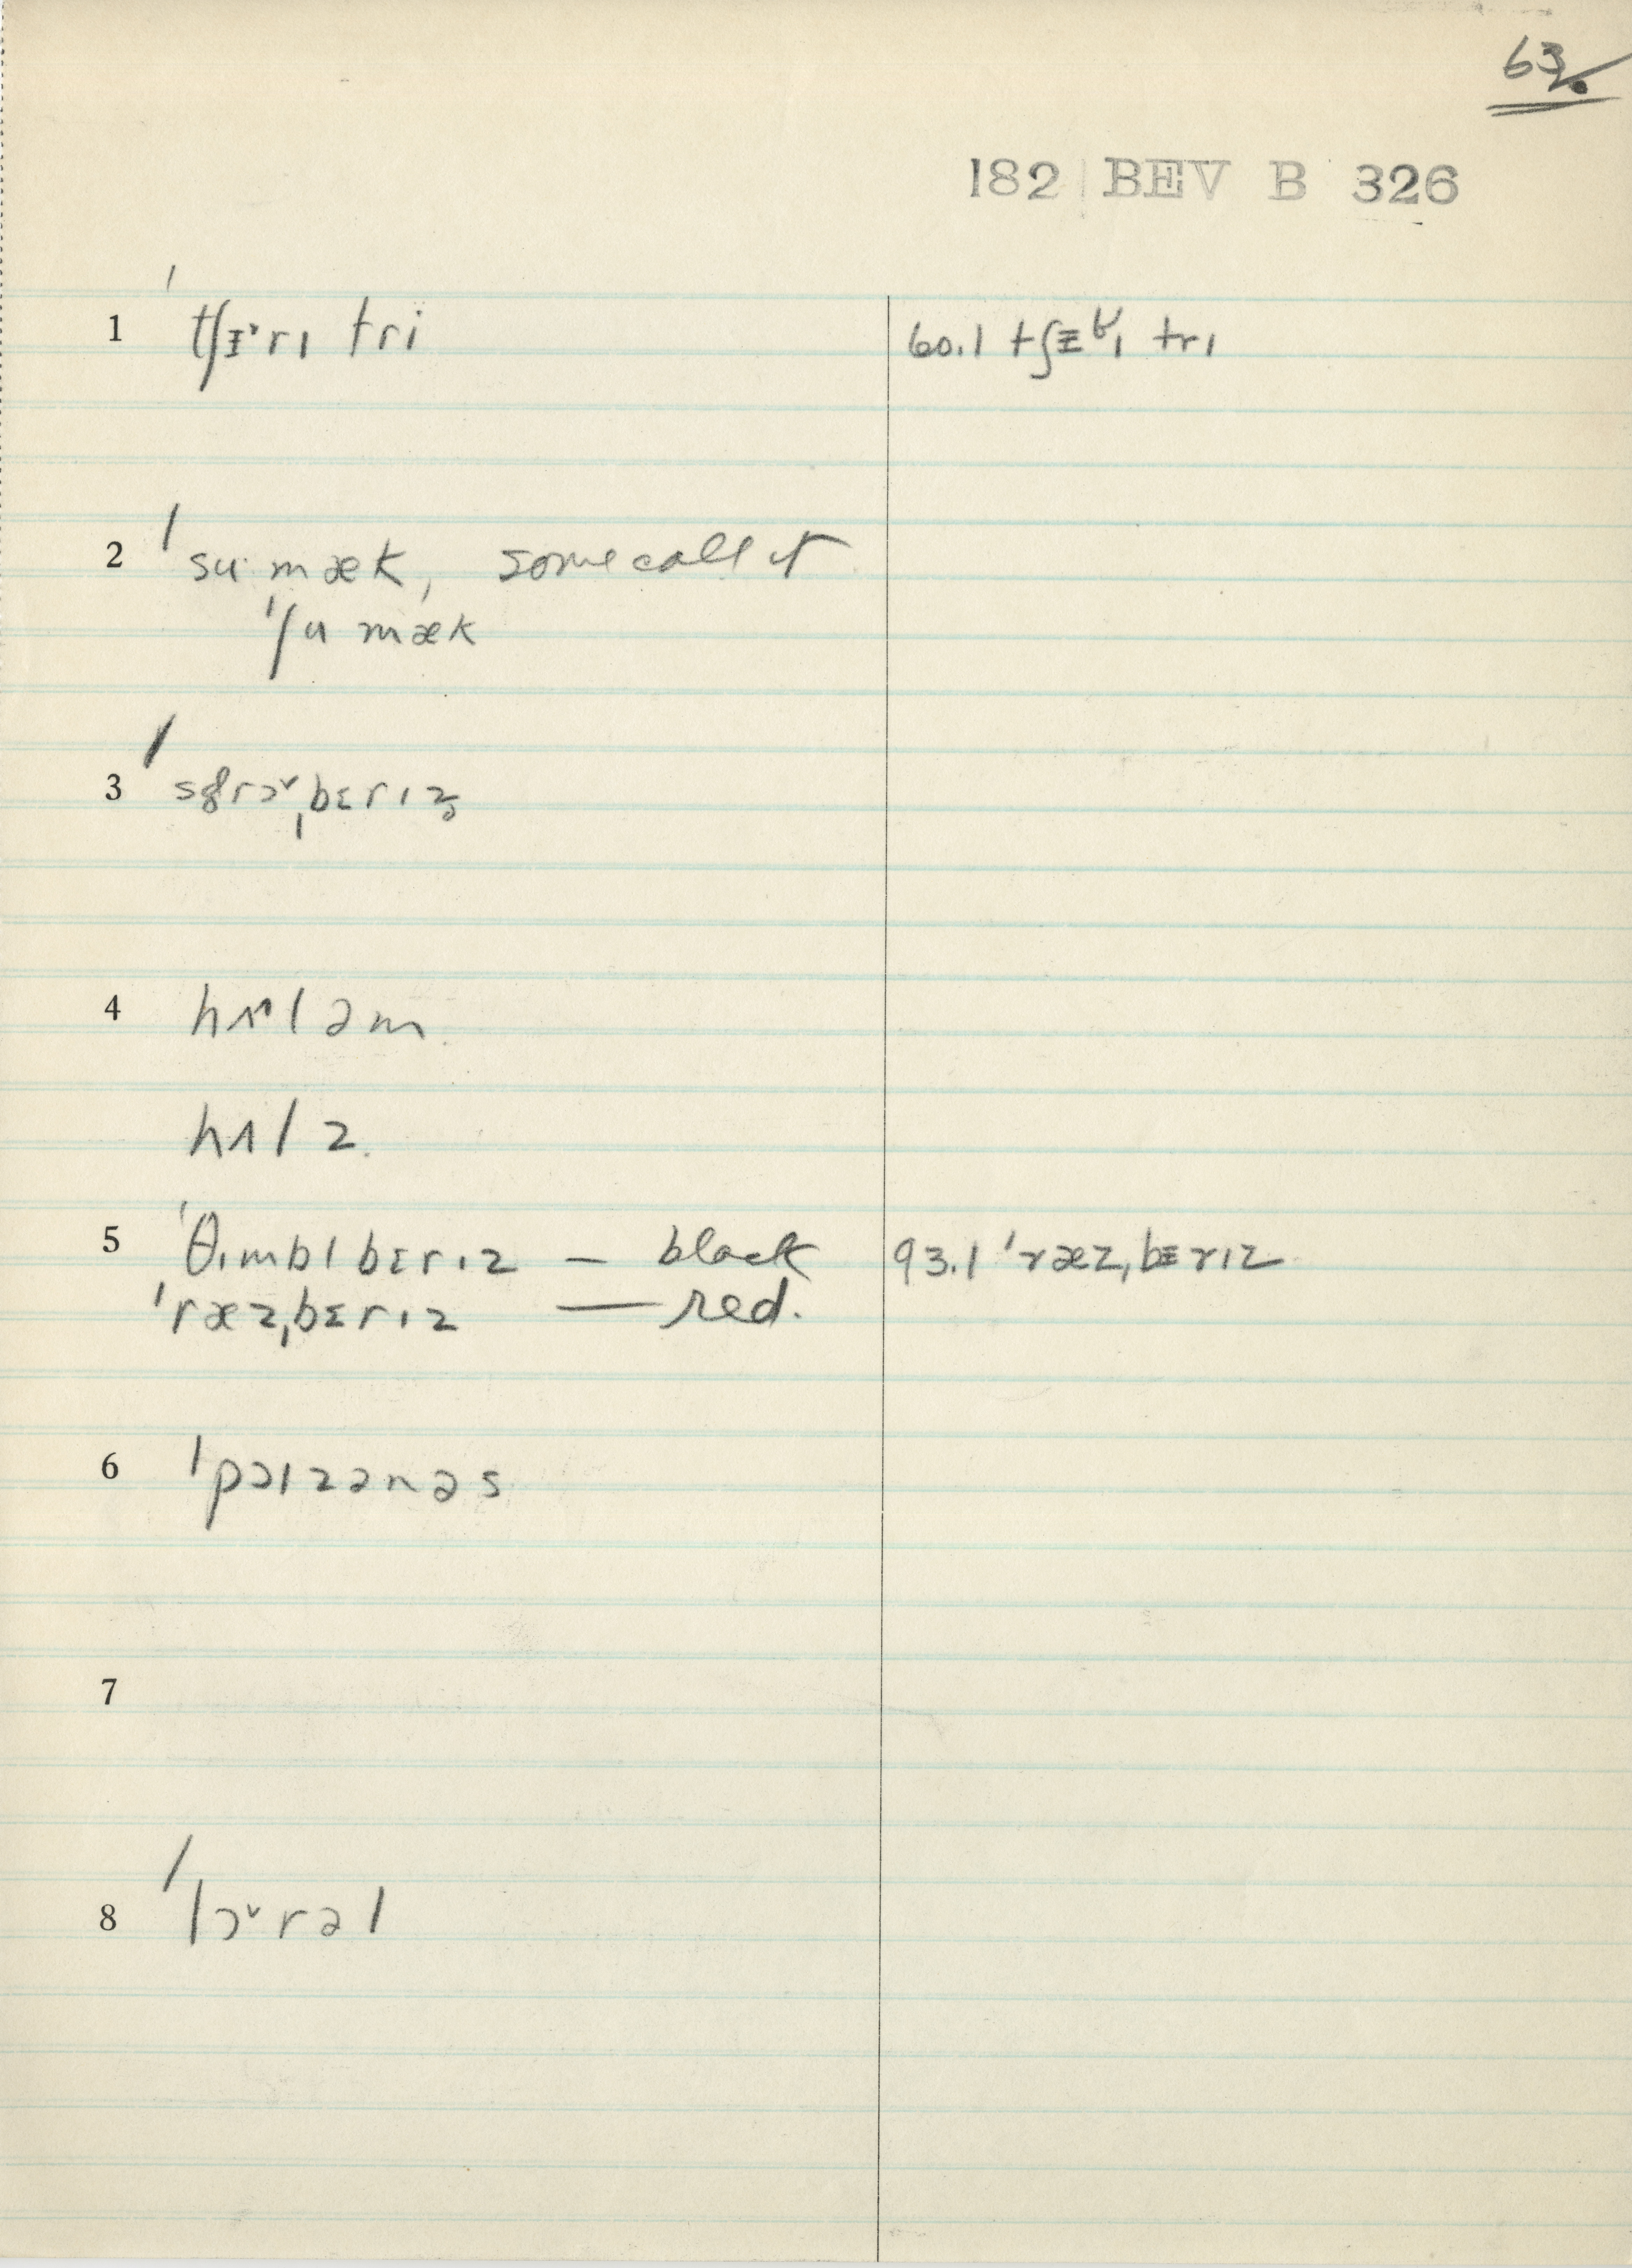 63
182 BEV B 326
1 ˈtʃɛ˞rɪ tri
60.1 tʃɛɚɪ trɪ
2 ˈsuˑmæk, some call it
ˈʃu mæk
3 ˈstrɔˇˌbɛrɪz̥
4 hʌ^ləm.
hʌlz.
5 ˈθɪmblbɛrɪz — black
93.1 ˈræzˌbɛrɪz
ˈræzˌbɛrɪz — red.
6 ˈpɔɪzənəs
7
8 ˈlɔˇrəl